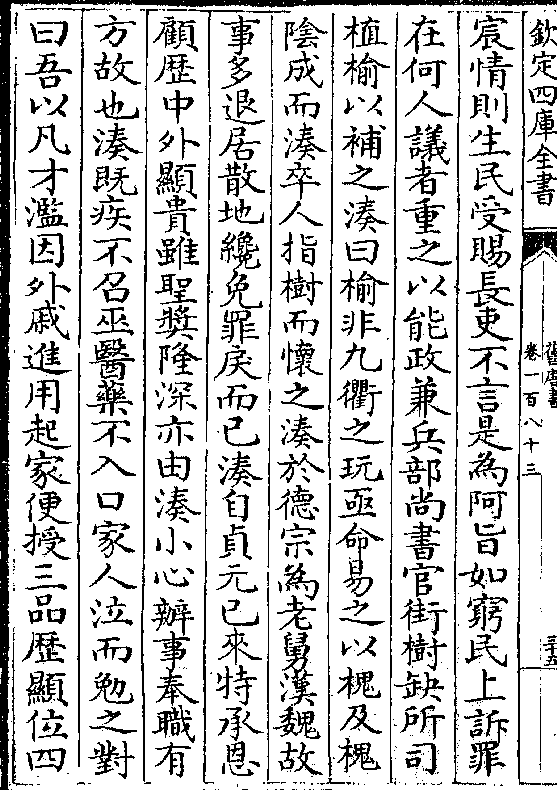 欽定四庫全書
舊唐書
卷一百八十三
三十五
宸情則生民受賜長吏不言是為阿旨如窮民上訴罪
在何人議者重之以能政兼兵部尚書官街樹缺所司
植榆以補之湊曰榆非九衢之玩亟命易之以槐及槐
隂成而湊卒人指樹而懷之湊於德宗為老舅漢魏故
事多退居散地纔免罪戾而已湊自貞元已來特承恩
顧歴中外顯貴雖聖奬隆深亦由湊小心辦事奉職有
方故也湊既疾不召巫醫藥不入口家人泣而勉之對
曰吾以凡才濫因外戚進用起家便授三品歴顯位四